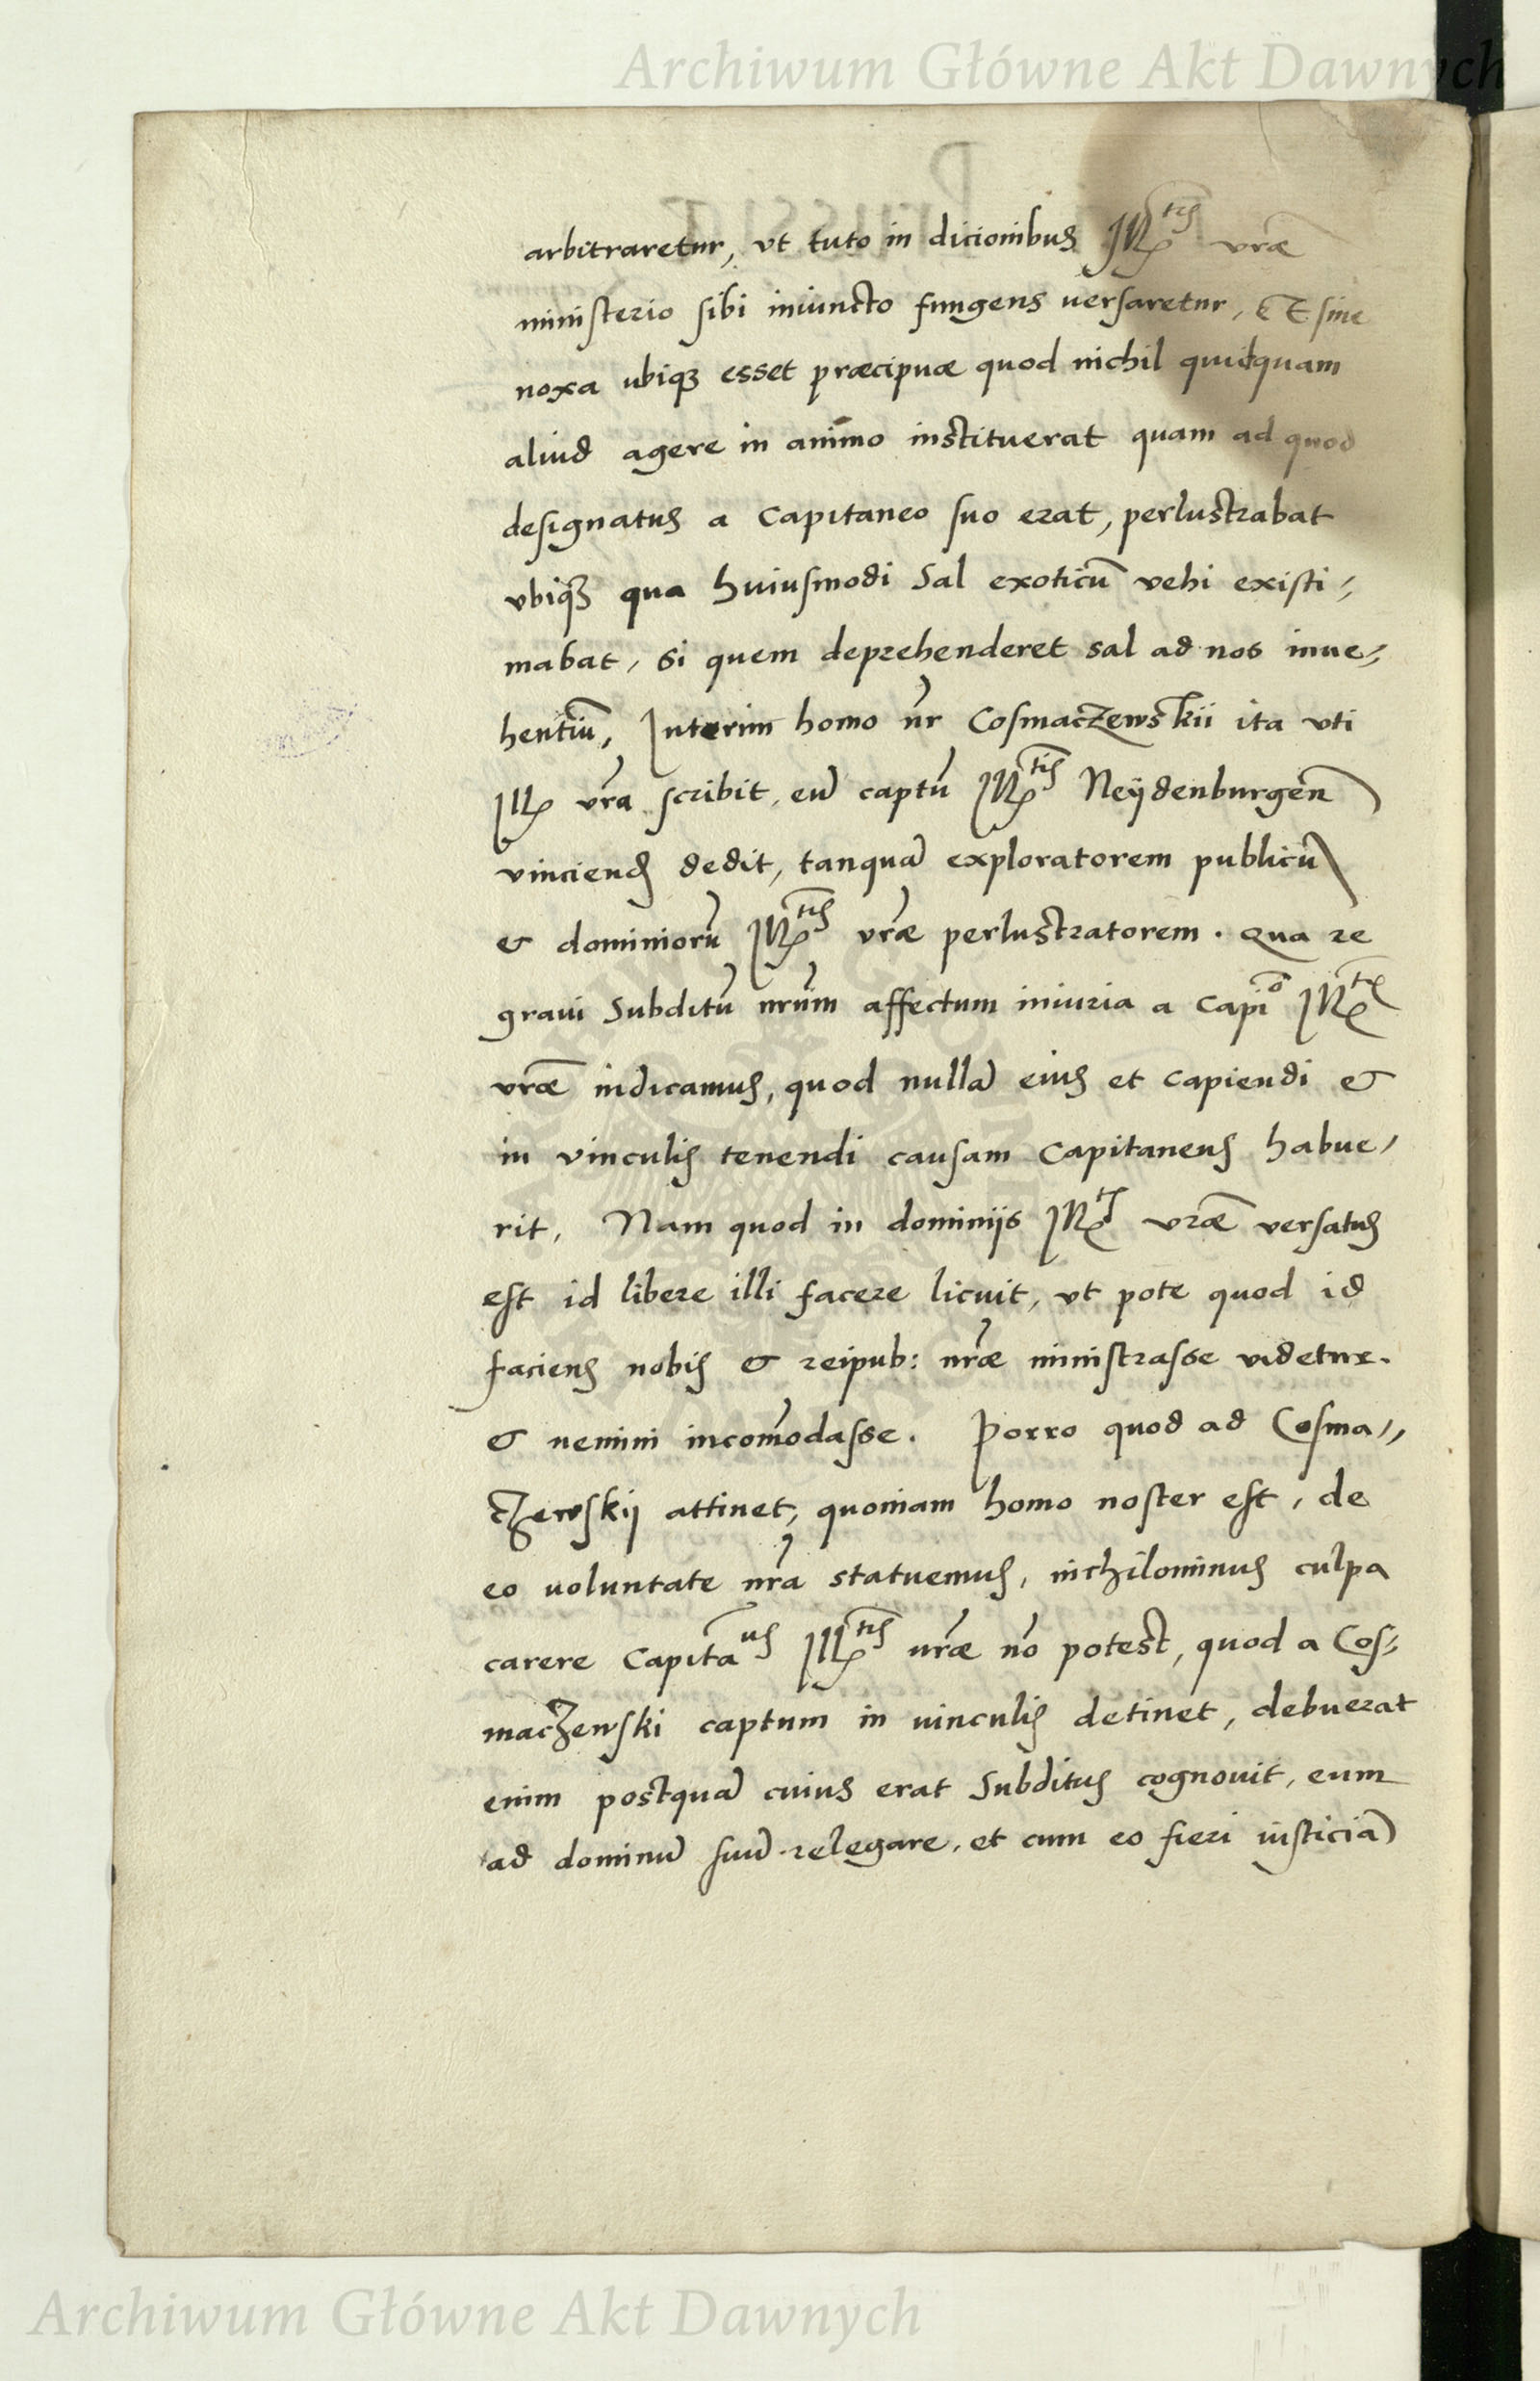 Archiwum Główne Akt Dawnych
arbitraretur, vt tuto in dicionibus Ill^tis vrae
ministerio sibi iniuncto fungens uersaretur, Et sine
noxa ubiqꝫ esset præcipuæ quod nichil quidquam
aliud agere in animo instituerat quam ad quod
designatus a Capitaneo suo erat, perlustrabat
vbiqꝫ qua huiusmodi Sal exoticū vehi existi-
mabat, si quem deprehenderet sal ad nos inue-
hentiū, Interim homo nr̄ Cosmaczewskii ita vti
Ill vrā scribit, eū captū Ill^tis Neÿdenburgen̄
vinciend dedit, tanquā exploratorem publicū
& dominiorū Ill^tis vræ perlustratorem. Qua re
graui Subditū nrūm affectum iniuria a Capi^o Ill^tis
vræ indicamus, quod nullā eius et capiendi &
in vinculis tenendi causam Capitaneus habue-
rit, Nam quod in dominijs Ill^tis vræ versatus
est id libere illi facere licuit, vt pote quod id
faciens nobis & reipub: nræ ministrasse videtur.
& nemini incom̄odasse. Porro quod ad Cosma-
czewskij attinet, quoniam homo noster est, de
eo uoluntate nrā statuemus, nichilominus culpa
carere Capita^us Ill^tis uræ nō potest, quod a Cos-
maczewski captum in uinculis detinet, debuerat
enim postquā cuius erat Subditus cognouit, eum
ad dominū suū relegare, et cum eo fieri iusticiā
Archiwum Główne Akt Dawnych